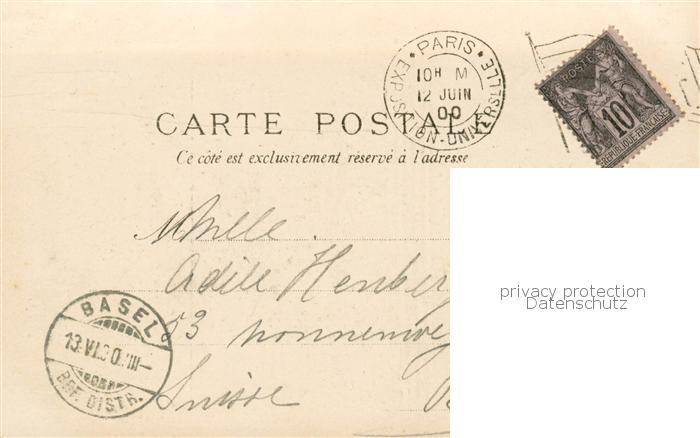 PARIS
EXPOSITION-UNIVERSELLE
10H M
12 JUIN
00
POSTES
10
REPUBLIQUE FRANÇAISE
CARTE POSTALE
Ce côté est exclusivement réservé à l'adresse
Mlle
Adèle Henberg
privacy protection
Datenschutz
BASEL
13.VI.00.VIII-
BRF. DISTR.
53 nonnenweg
Suisse